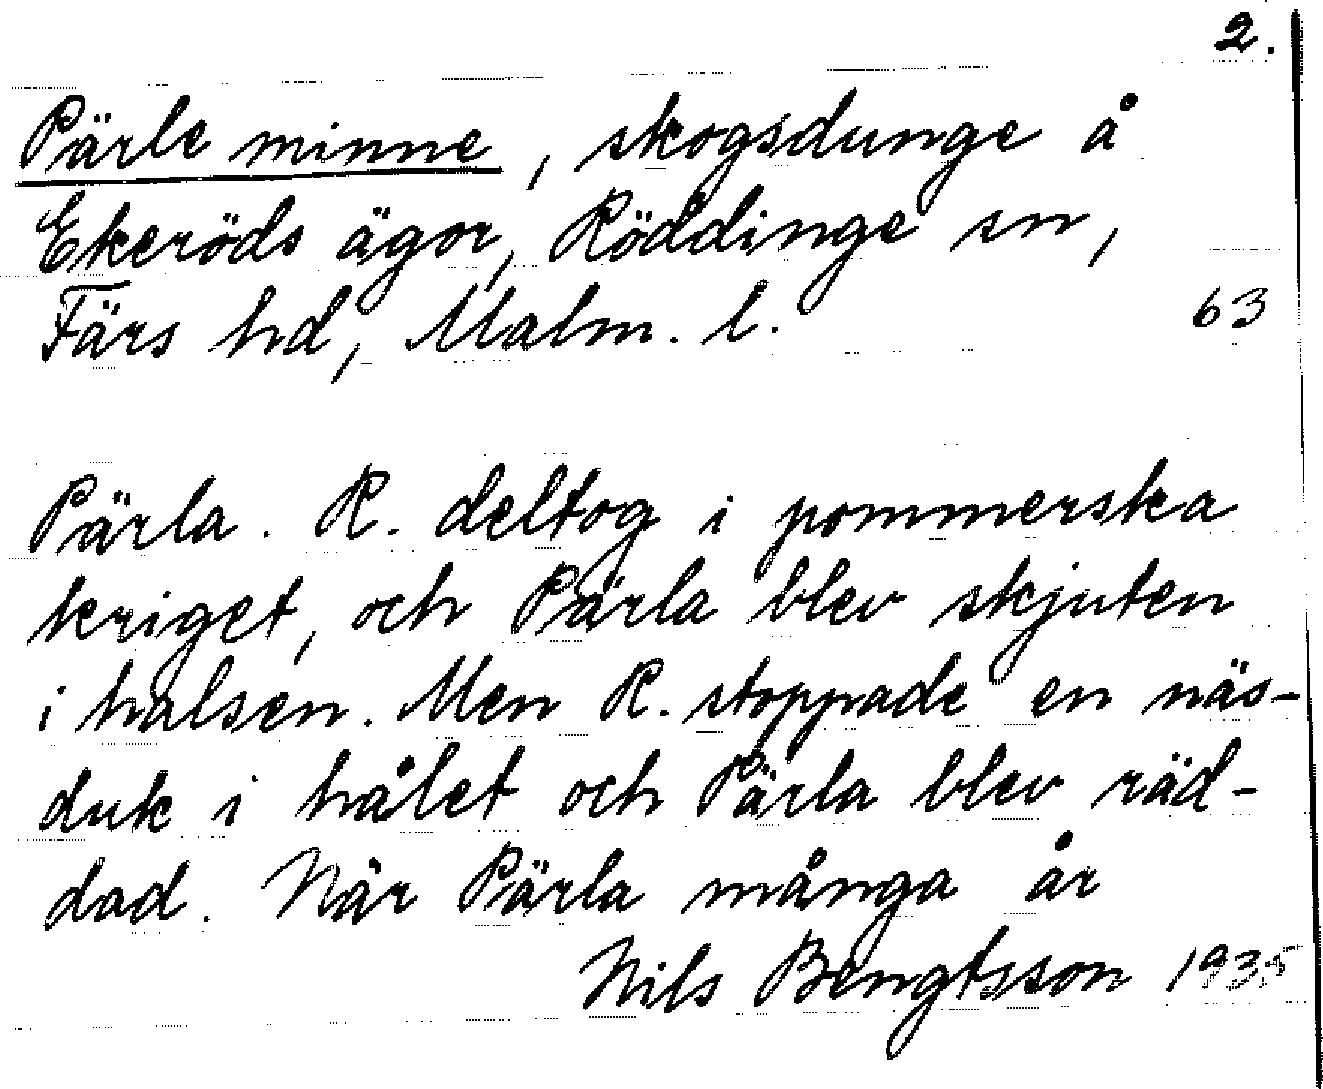 2.
Pärle minne, skogsdunge å
Ekeröds ägor, Röddinge sn,
Färs hd, Malm. l.
63
Pärla. R. deltog i pommerska
kriget, och Pärla blev skjuten
i halsen. Men R. stoppade en näs-
duk i hålet och Pärla blev räd-
dad. När Pärla många år
Nils Bengtsson 1935